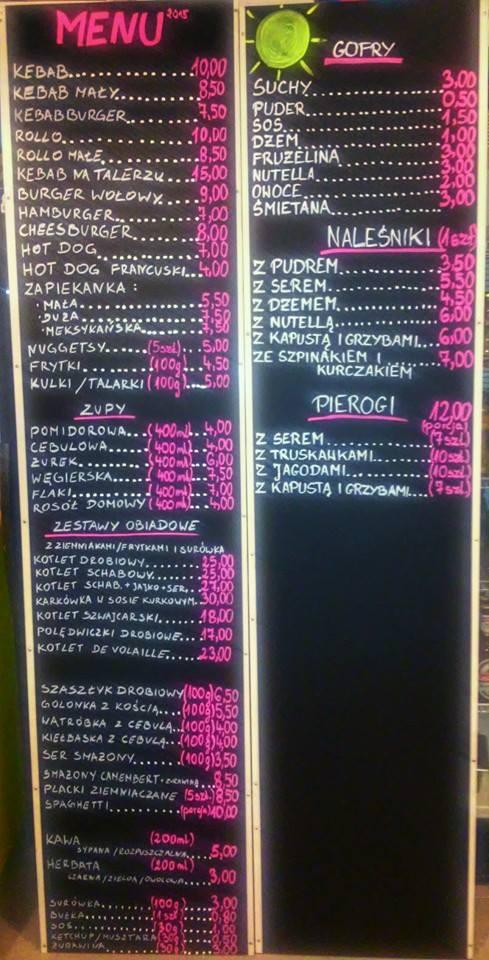 MENU 2015
KEBAB 10,00
KEBAB MAŁY 8,50
KEBABBURGER 7,50
ROLLO 10,00
ROLLO MAŁE 8,50
KEBAB NA TALERZU 15,00
BURGER WOŁOWY 9,00
HAMBURGER 7,00
CHEESBURGER 8,00
HOT DOG 7,00
HOT DOG FRANCUSKI 4,00
ZAPIEKANKA :
· MAŁA 5,50
· DUŻA 7,50
· MEKSYKAŃSKA 7,50
NUGGETSY (5szt.) 5,00
FRYTKI (100g) 4,50
KULKI / TALARKI (100g) 5,00
ZUPY
POMIDOROWA (400ml) 4,00
CEBULOWA (400ml) 4,00
ŻUREK (400ml) 6,00
WĘGIERSKA (400ml) 7,50
FLAKI (400ml) 7,00
ROSÓŁ DOMOWY (400ml) 4,00
ZESTAWY OBIADOWE
Z ZIEMNIAKAMI/FRYTKAMI I SURÓWKA
KOTLET DROBIOWY 25,00
KOTLET SCHABOWY 25,00
KOTLET SCHAB. + JAJKO + SER 27,00
KARKÓWKA W SOSIE KURKOWYM 30,00
KOTLET SZWAJCARSKI 18,00
POLĘDWICZKI DROBIOWE 17,00
KOTLET DE VOLAILLE 23,00
SZASZŁYK DROBIOWY (100g) 6,50
GOLONKA Z KOŚCIĄ (100g) 5,50
WĄTRÓBKA Z CEBULĄ (100g) 4,00
KIEŁBASKA Z CEBULĄ (100g) 4,00
SER SMAŻONY (100g) 3,50
SMAŻONY CAMENBERT + ŻURAWINA 8,50
PLACKI ZIEMNIACZANE (5szt.) 8,50
SPAGHETTI (porcja) 10,00
KAWA (200ml)
SYPANA / ROZPUSZCZALNA 5,00
HERBATA (200ml)
CZARNA / ZIELONA / OWOCOWA 3,00
SURÓWKA (100g) 3,00
BUŁKA (1szt) 0,80
SOS (30g) 1,00
KETCHUP / MUSZTARDA (30g)
ŻURAWINA
GOFRY
SUCHY 3,00
PUDER 0,50
SOS 1,50
DŻEM 1,00
FRUŻELINA 3,00
NUTELLA 3,00
OWOCE 2,00
ŚMIETANA 3,00
NALEŚNIKI (1szt)
Z PUDREM 3,50
Z SEREM 5,50
Z DŻEMEM 4,50
Z NUTELLĄ 6,00
Z KAPUSTĄ I GRZYBAMI 6,00
ZE SZPINAKIEM I
KURCZAKIEM 7,00
PIEROGI 12,00
(porcja)
Z SEREM (7szt)
Z TRUSKAWKAMI (10szt)
Z JAGODAMI (10szt)
Z KAPUSTĄ I GRZYBAMI (7szt)